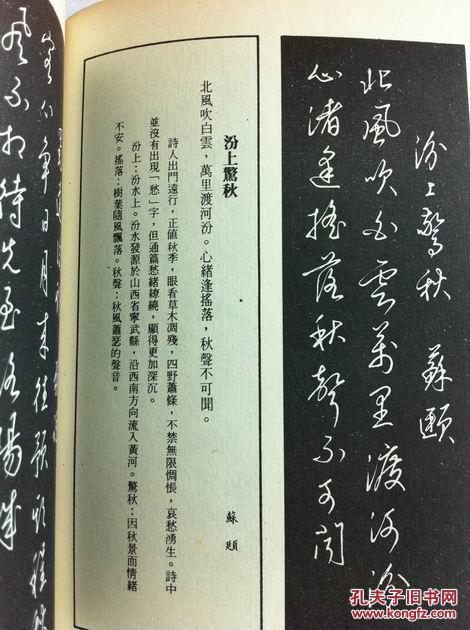 汾上驚秋　蘇頲
北風吹白雲萬里渡河汾
心緒逢搖落秋聲不可聞
汾上驚秋　蘇頲
北風吹白雲，萬里渡河汾。心緒逢搖落，秋聲不可聞。
詩人出門遠行，正值秋季，眼看草木凋殘，四野蕭條，不禁無限惆悵，哀愁湧生。詩中
並沒有出現「愁」字，但通篇愁緒繚繞，顯得更加深沉。
汾上：汾水上。汾水發源於山西省寧武縣，沿西南方向流入黃河。驚秋：因秋景而情緒
不安。搖落：樹葉隨風飄落。秋聲：秋風蕭瑟的聲音。
心爭日月來往預期程
風不相待先至洛陽城
孔夫子旧书网